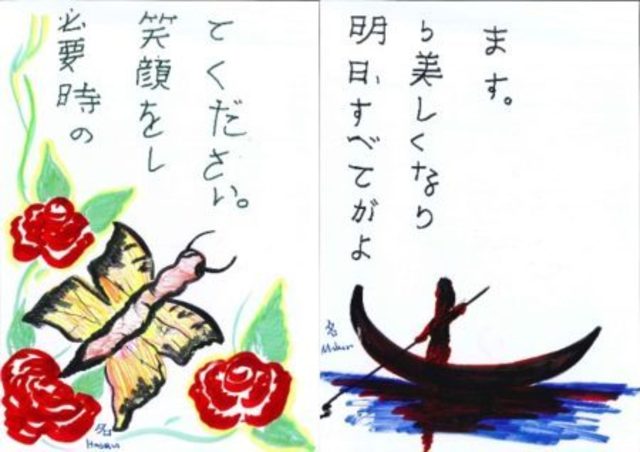 必要時の
笑顔をし
てください。
明日、すべてがよ
り美しくなり
ます。